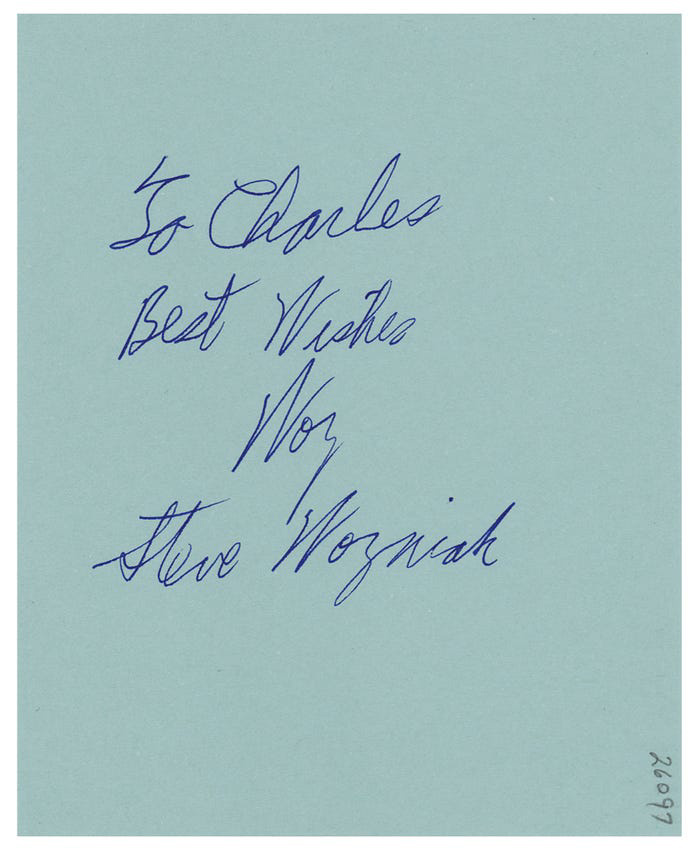 To Charles
Best Wishes
Woz
Steve Wozniak
26097